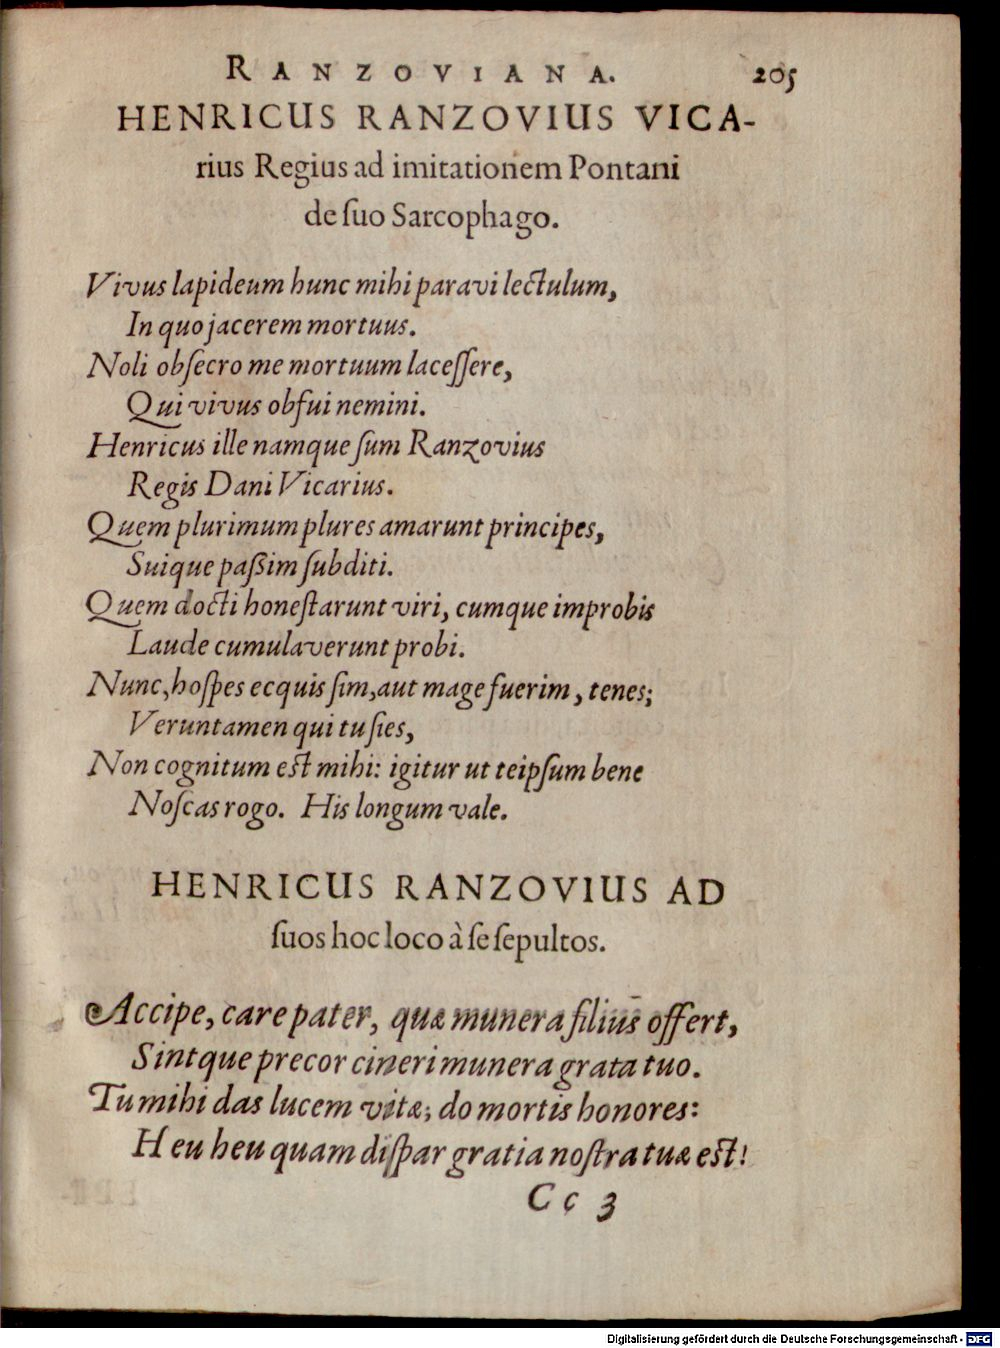 RANZOVIANA. 205
HENRICUS RANZOVIUS VICA-
rius Regius ad imitationem Pontani
de ſuo Sarcophago.
Vivus lapideum hunc mihi paravi lectulum,
In quo jacerem mortuus.
Noli obſecro me mortuum laceſſere,
Qui vivus obfui nemini.
Henricus ille namque ſum Ranzovius
Regis Dani Vicarius.
Quem plurimum plures amarunt principes,
Suique paßim ſubditi.
Quem docti honeſtarunt viri, cumque improbis
Laude cumulaverunt probi.
Nunc, hoſpes ecquis ſim, aut mage fuerim, tenes;
Veruntamen qui tu ſies,
Non cognitum eſt mihi: igitur ut teipſum bene
Noſcas rogo. His longum vale.
HENRICUS RANZOVIUS AD
ſuos hoc loco à ſe ſepultos.
Accipe, care pater, quæ munera filius offert,
Sintque precor cineri munera grata tuo.
Tu mihi das lucem vitæ; do mortis honores:
Heu heu quam diſpar gratia noſtra tuæ eſt!
Cc 3
Digitalisierung gefördert durch die Deutsche Forschungsgemeinschaft - DFG